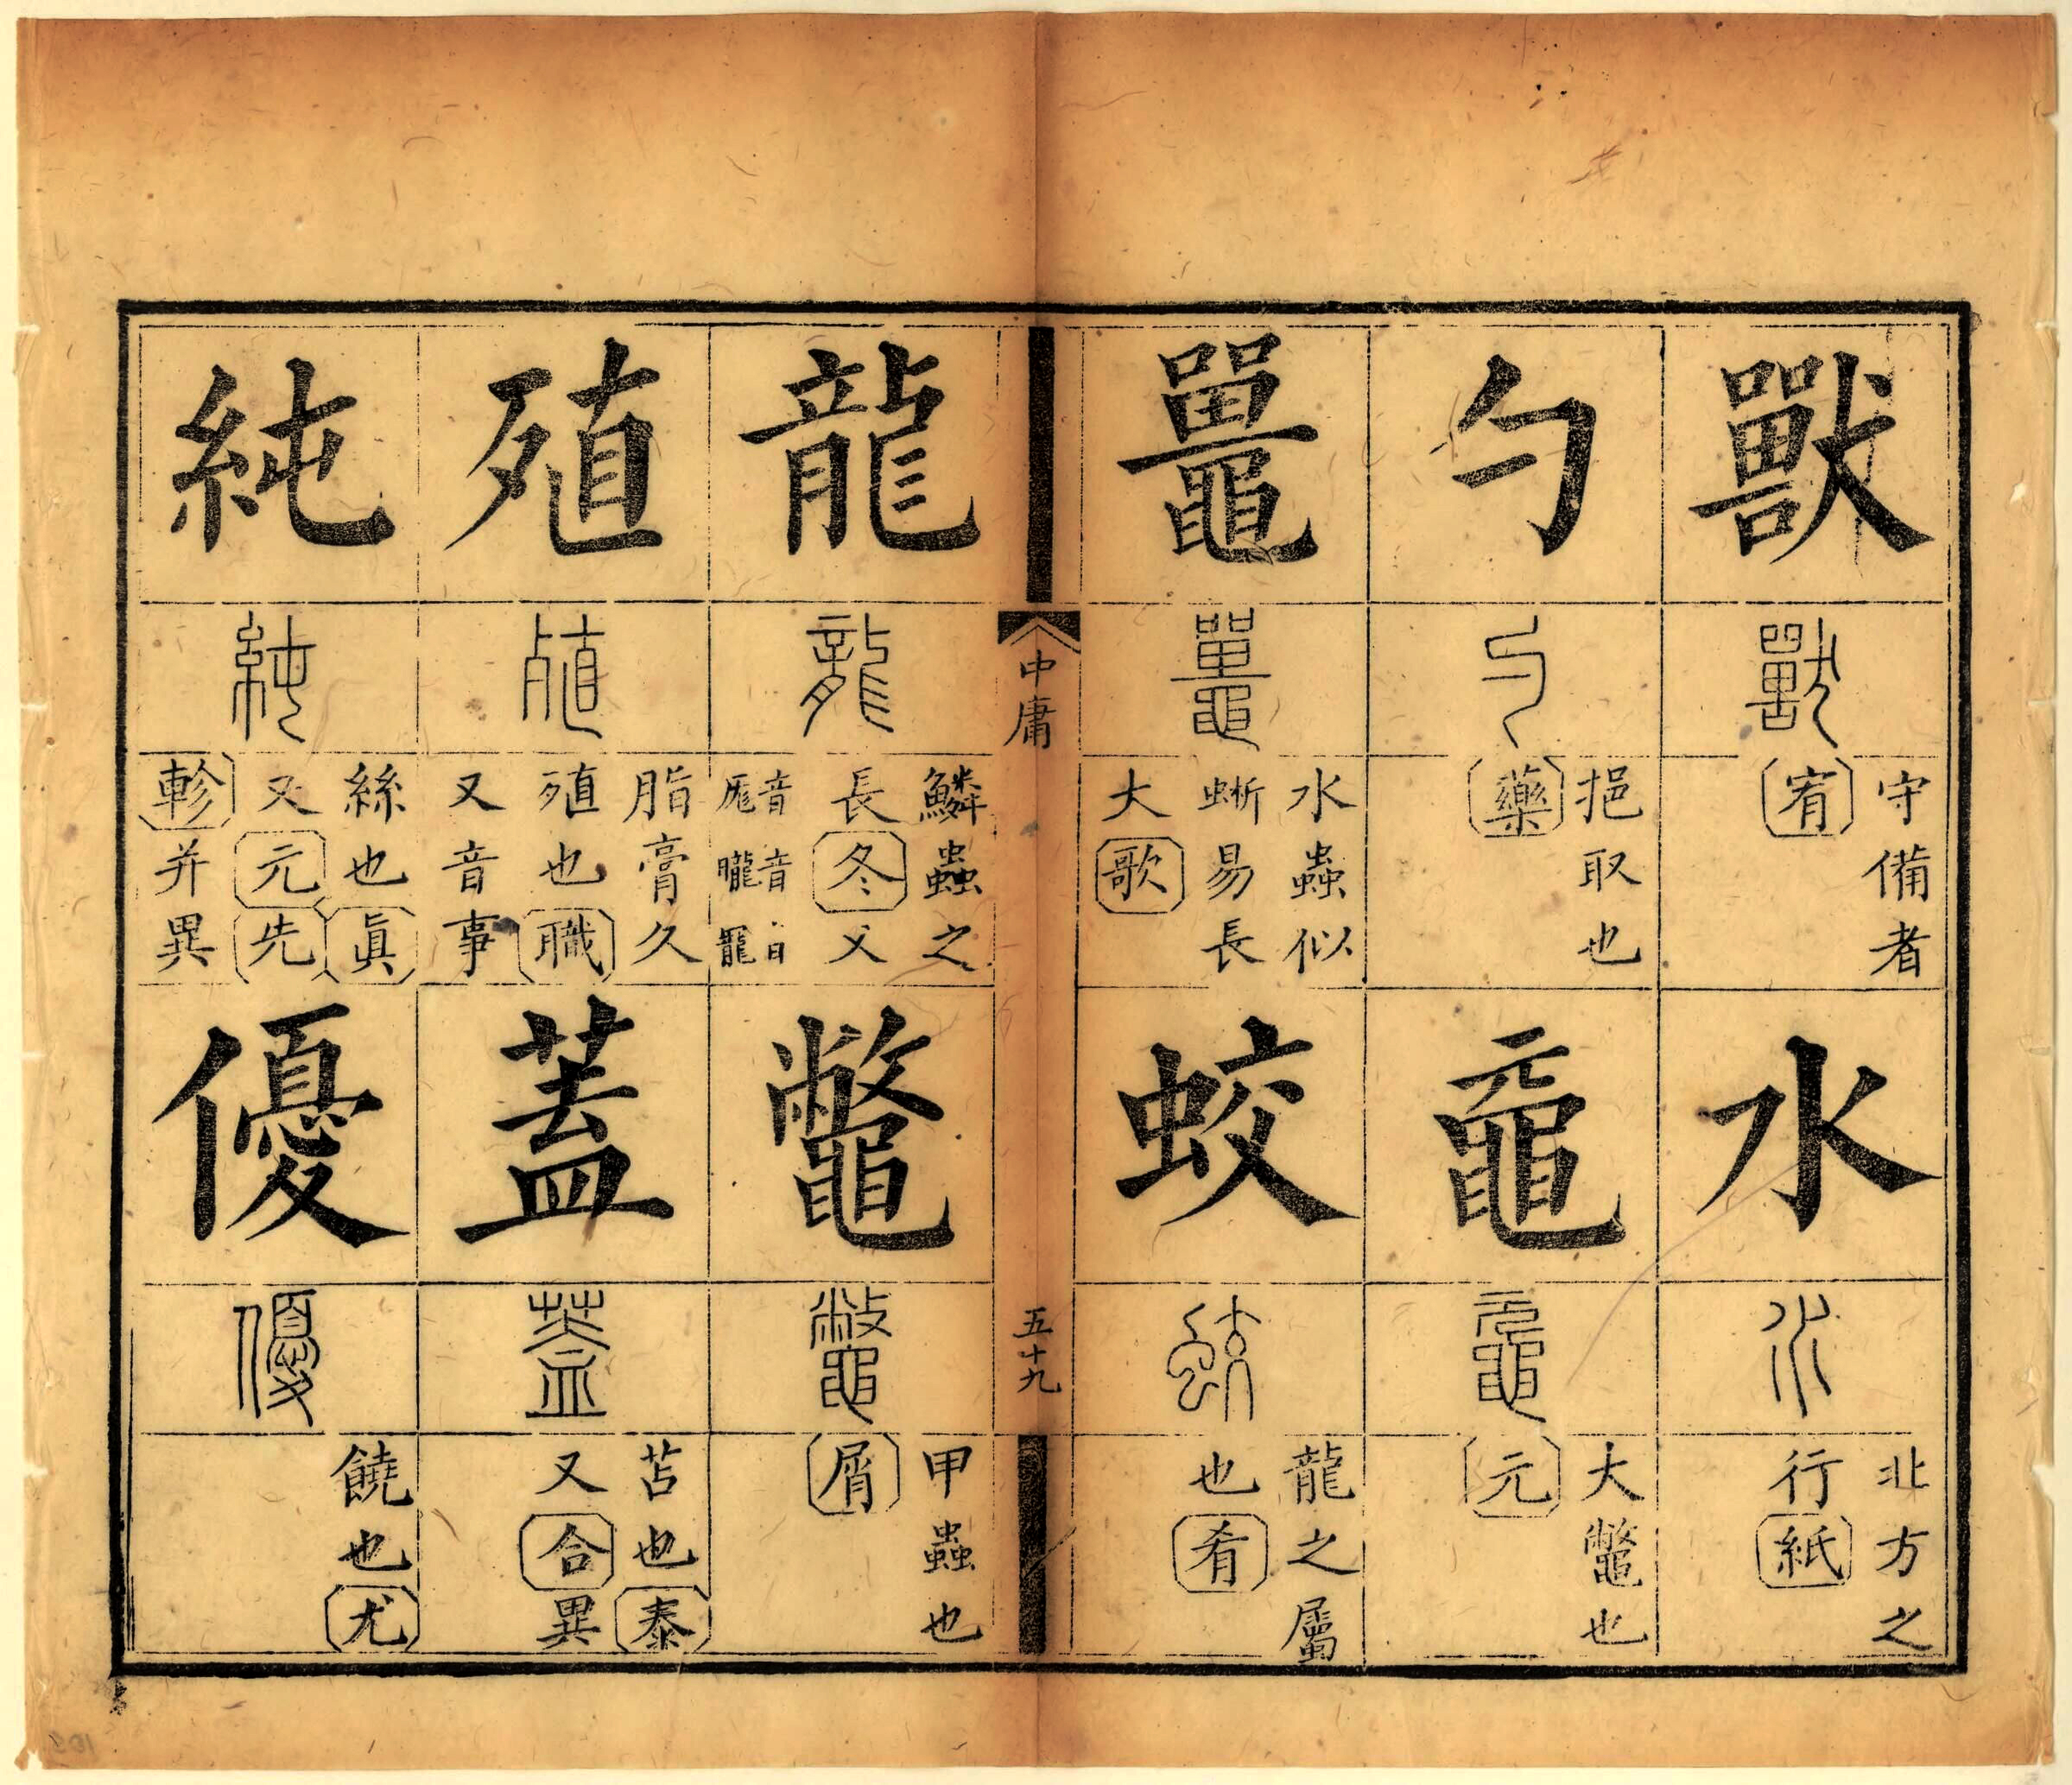 獸
獸
守備者
宥
水
水
北方之
行紙
勺
勺
挹取也
藥
黿
黿
大鼈也
元
鼉
鼉
水蟲似
蜥易長
大歌
蛟
蛟
龍之屬
也肴
中庸
五十九
龍
龍
鱗蟲之
長冬又
音厖音朧音
鼈
鼈
甲蟲也
屑
殖
殖
脂膏久
殖也職
又音事
蓋
蓋
苫也泰
又合異
純
純
絲也眞
又元先
軫并異
優
優
饒也尤